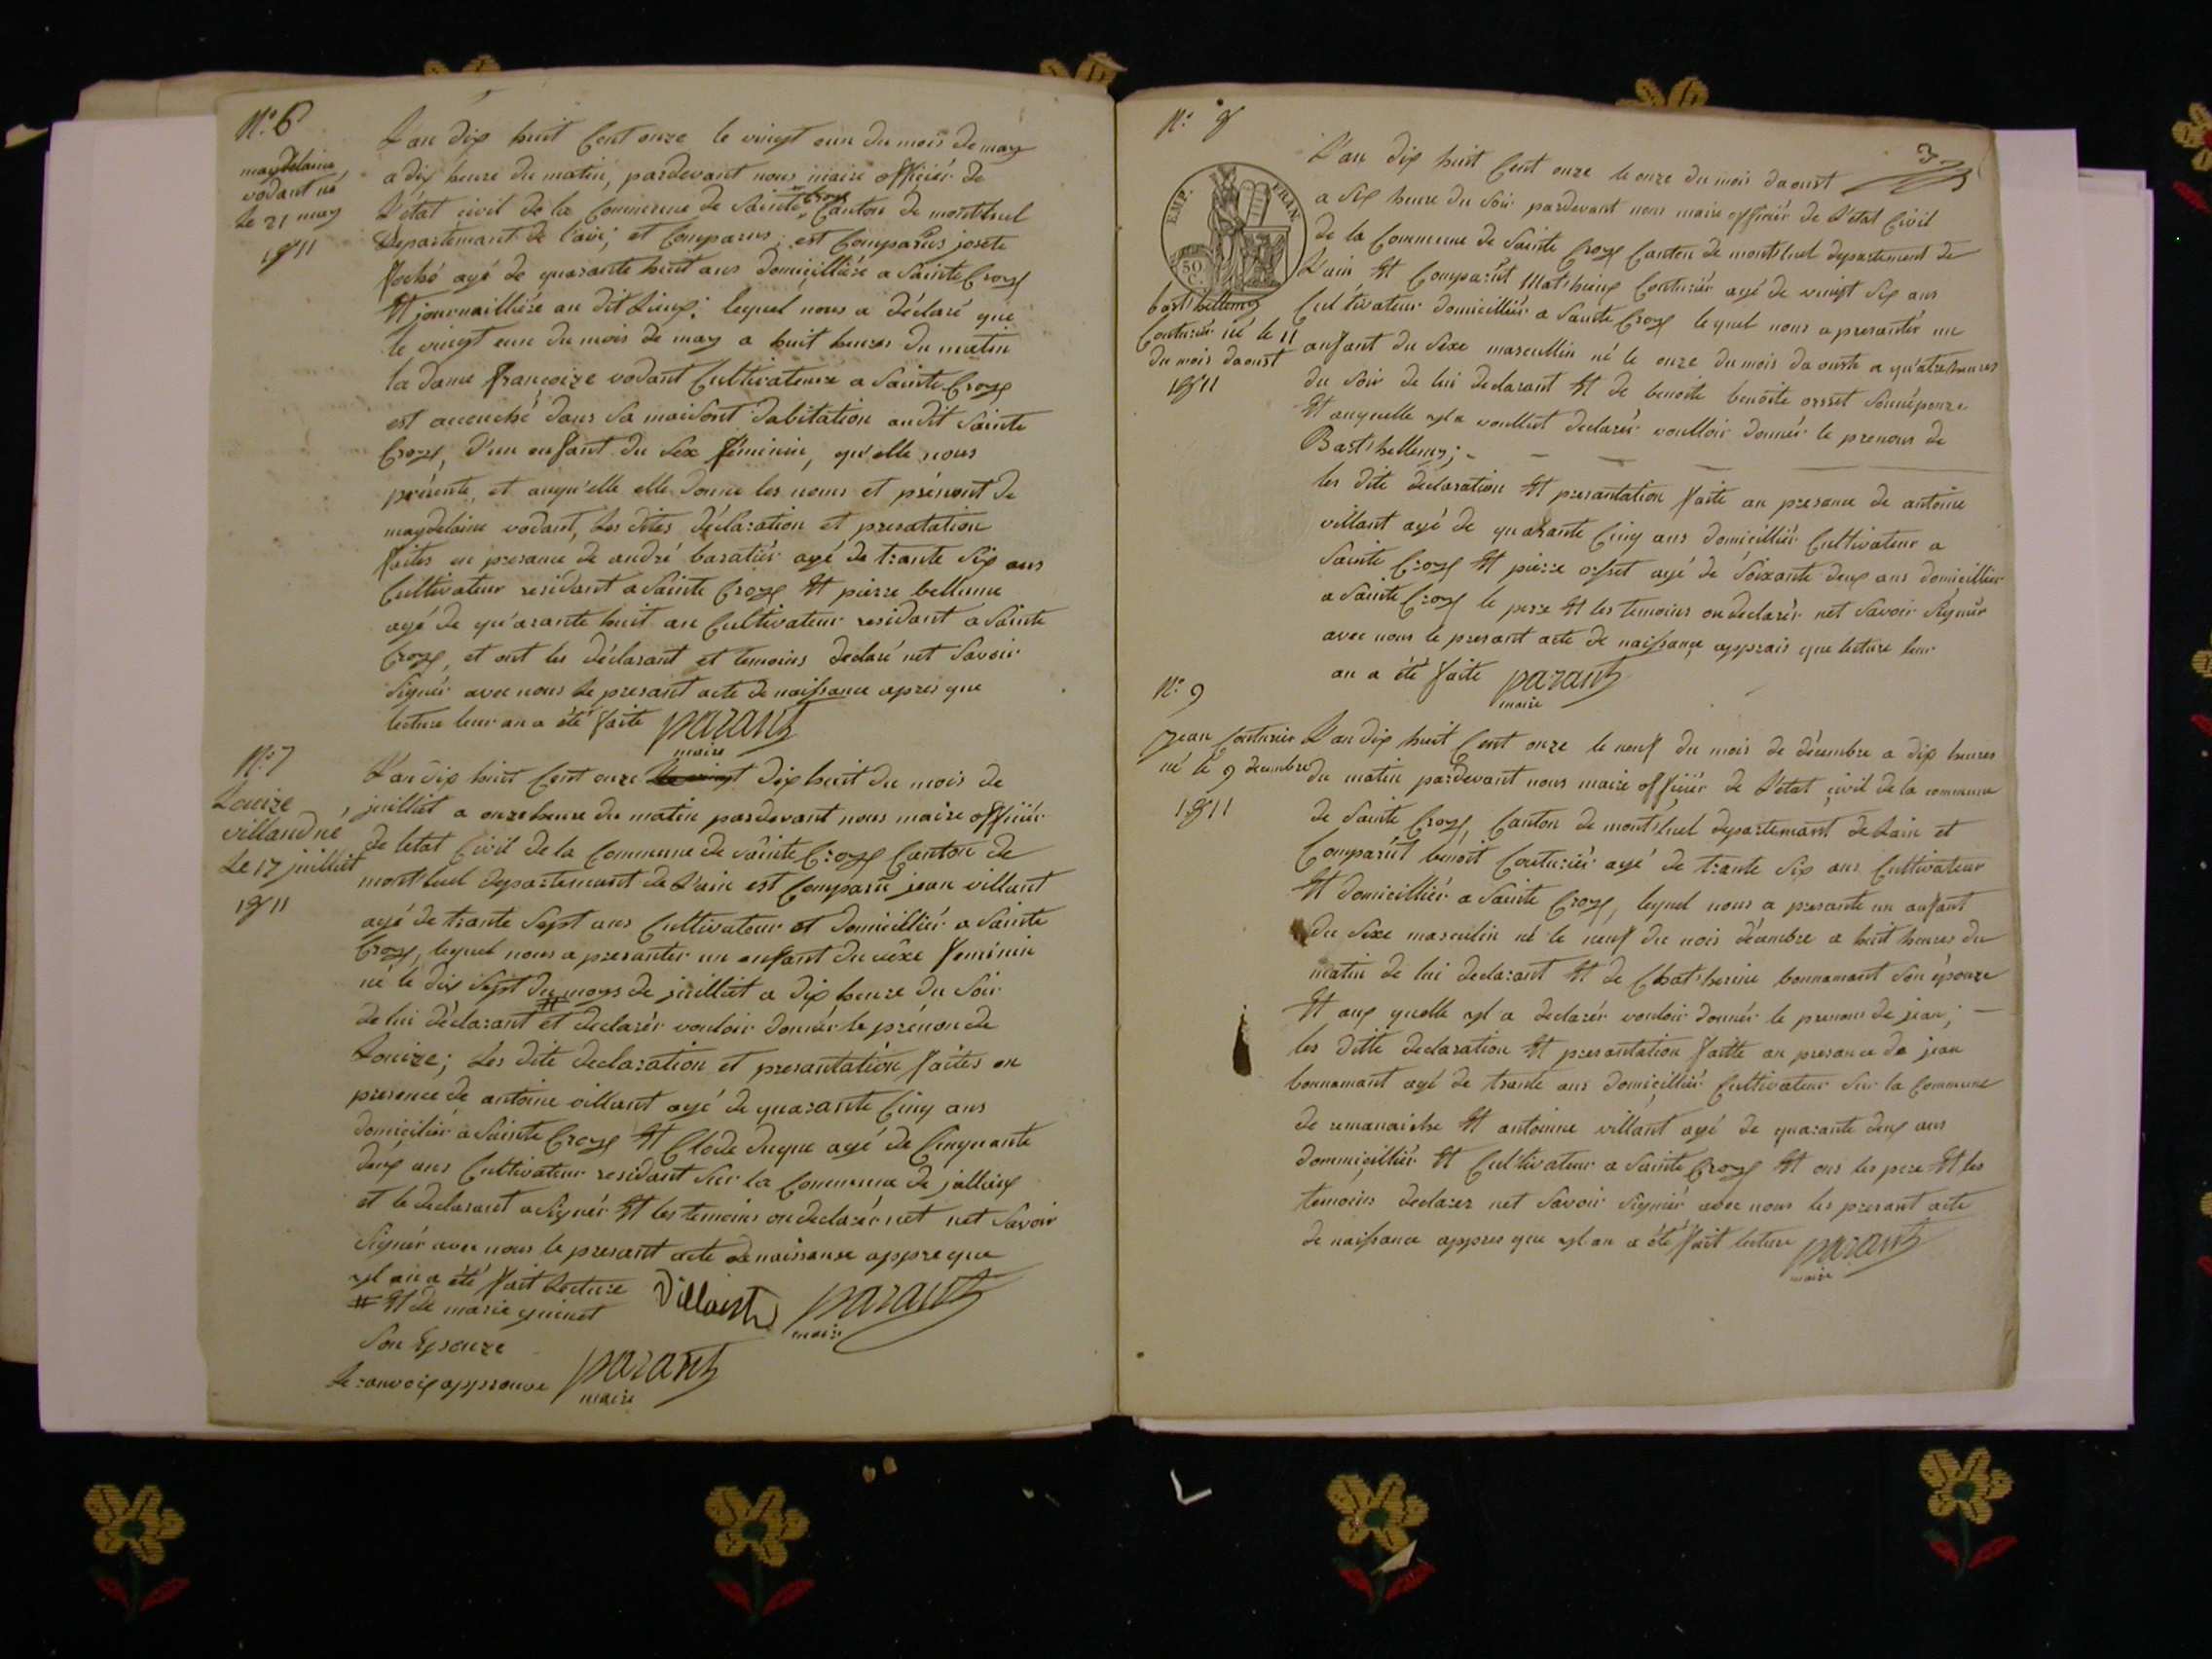 N.o 6
magdelaine
vodant né
Le 21 may
1811
L'an dix huit Cent onze le vingt eun du mois de may
a dix heure du matin, pardevant nous maire officiér de
L'état civil de la Commune de Sainte Croix Canton de montluel
Departemant de l'ain; et Comparus; est Comparus josete
foché agé de quarante huit ans domiçillière a Sainte Croix
Et journaillière au dit Lieux; lequel nous a déclaré que
le vingt eun du mois de may a huit heures du matin
la dame françoize vodant Cultivateure a Sainte Croix
est accouché dans sa maisont dabitation audit Sainte
Croix, D'un enfant du Sex féminin, qu'elle nous
présente, et auqu'elle elle donne les noms et prénomt de
magdelaine vodant, Les dites déclaration et presatation
faites en presance de andré baratiér agé de trante Six ans
Cultivateur residant a Sainte Croix Et pierre bellume
agé de qu'arante huit an Cultivateur residant a Sainte
Croix, et ont les déclarant et temoins declaré net Savoir
Signér avec nous Le presant acte de naissance apres que
lecture leur an a été faite parant
maire
N.o 7
Louize
villand né
Le 17 juilliet
1811
L'an dix huit Cent onze Le vingt dix huit du mois de
juilliet a onze heure du matin pardevant nous maire officiér
de letat Civil de la Commune de Sainte Croix Canton de
montluel departemant de L'ain est Comparu jean villant
agé de trante Sept ans Cultivateur et domicilliér a Sainte
Croix, lequel nous a presanter un enfant du sexe feminin
né le dix Sept du moys de juilliet a dix heure du Soir
de lui déclarant # et declarér vouloir donnér le prénon de
Louize; Les dite declaration et presantation faites en
presence de antoine villant agé de quarante Cinq ans
domiciliér a Sainte Croix Et Clode duque agé de Cinquante
deux ans Cultivateur residant Sur la Commune de jallieux
et le declarant a Signér Et les temoins on declarér net net Savoir
Signér avec nous le presant acte de naissanse appre que
yl an a été fait Lecture Villant parant
maire
# Et de marie guinet
Son Epouze
Le ranvoix approuve parant
maire
N.o 8
3
EMP. FRAN.
50 C.
Barthellemy
Couturiér né le 11
du mois daoust
1811
L'an dix huit Cent onze le onze du mois daoust
a Six heure du Soir pardevant nous maire officiér de L'état Civil
de la Commune de Sainte Croix Canton de montluel departement de
L'ain Et Comparût Mathieux Couturiér agé de vingt Six ans
Cultivateur domicilliér a Sainte Croix lequel nous a presantér un
anfant du Sexe mascullin né le onze du mois daouste a qu'atre heures
du Soir de lui declarant Et de benoite benoite orsset Son népouze
Et auquelle yl a voullut declarér voulloir donnér le prenom de
Barthellemy;
les dite declaration Et presantation faite an presance de antoine
villant agé de quarante Cinq ans domicilliér Cultivateur a
Sainte Croix Et pierre orsset agé de Soixante deux ans domicillier
a Sainte Croix le pere Et les temoins on declarér net Savoir Signér
avec nous le presant acte de naissançe apprais que lecture leur
an a été faite parant
maire
N.o 9
jean Couturier
né le 9 decembre
1811
L'an dix huit Cent onze le neuf du mois de décembre a dix heures
du matin pardevant nous maire officiér de L'état çivil de la commune
de Sainte Croix, Canton de montluel departemant de Lain et
Comparût bénoit Couturiér agé de trante Six ans Cultivateur
Et domicilliér a Sainte Croix, lequel nous a presante un anfant
du Sixe masculin né le neuf du mois décembre a huit heures du
matin de lui declarant Et de Chatherine bonnamant Son épouze
Et aux quelle yl a declarér vouloir donnér le prenom de jean;
les ditte declaration Et presantation faitte an presance de jean
bonnamant agé de trante ans domiçilliér Cultivateur Sur la Commune
de romanaiche Et antoinne villant agé de quarante deux ans
dommiçilliér Et Cultivateur a Sainte Croix Et ons les pere Et les
temoins declarer net Savoir Signiér avec nous les presant acte
de naissance appres que yl an a été fait lecture parant
maire